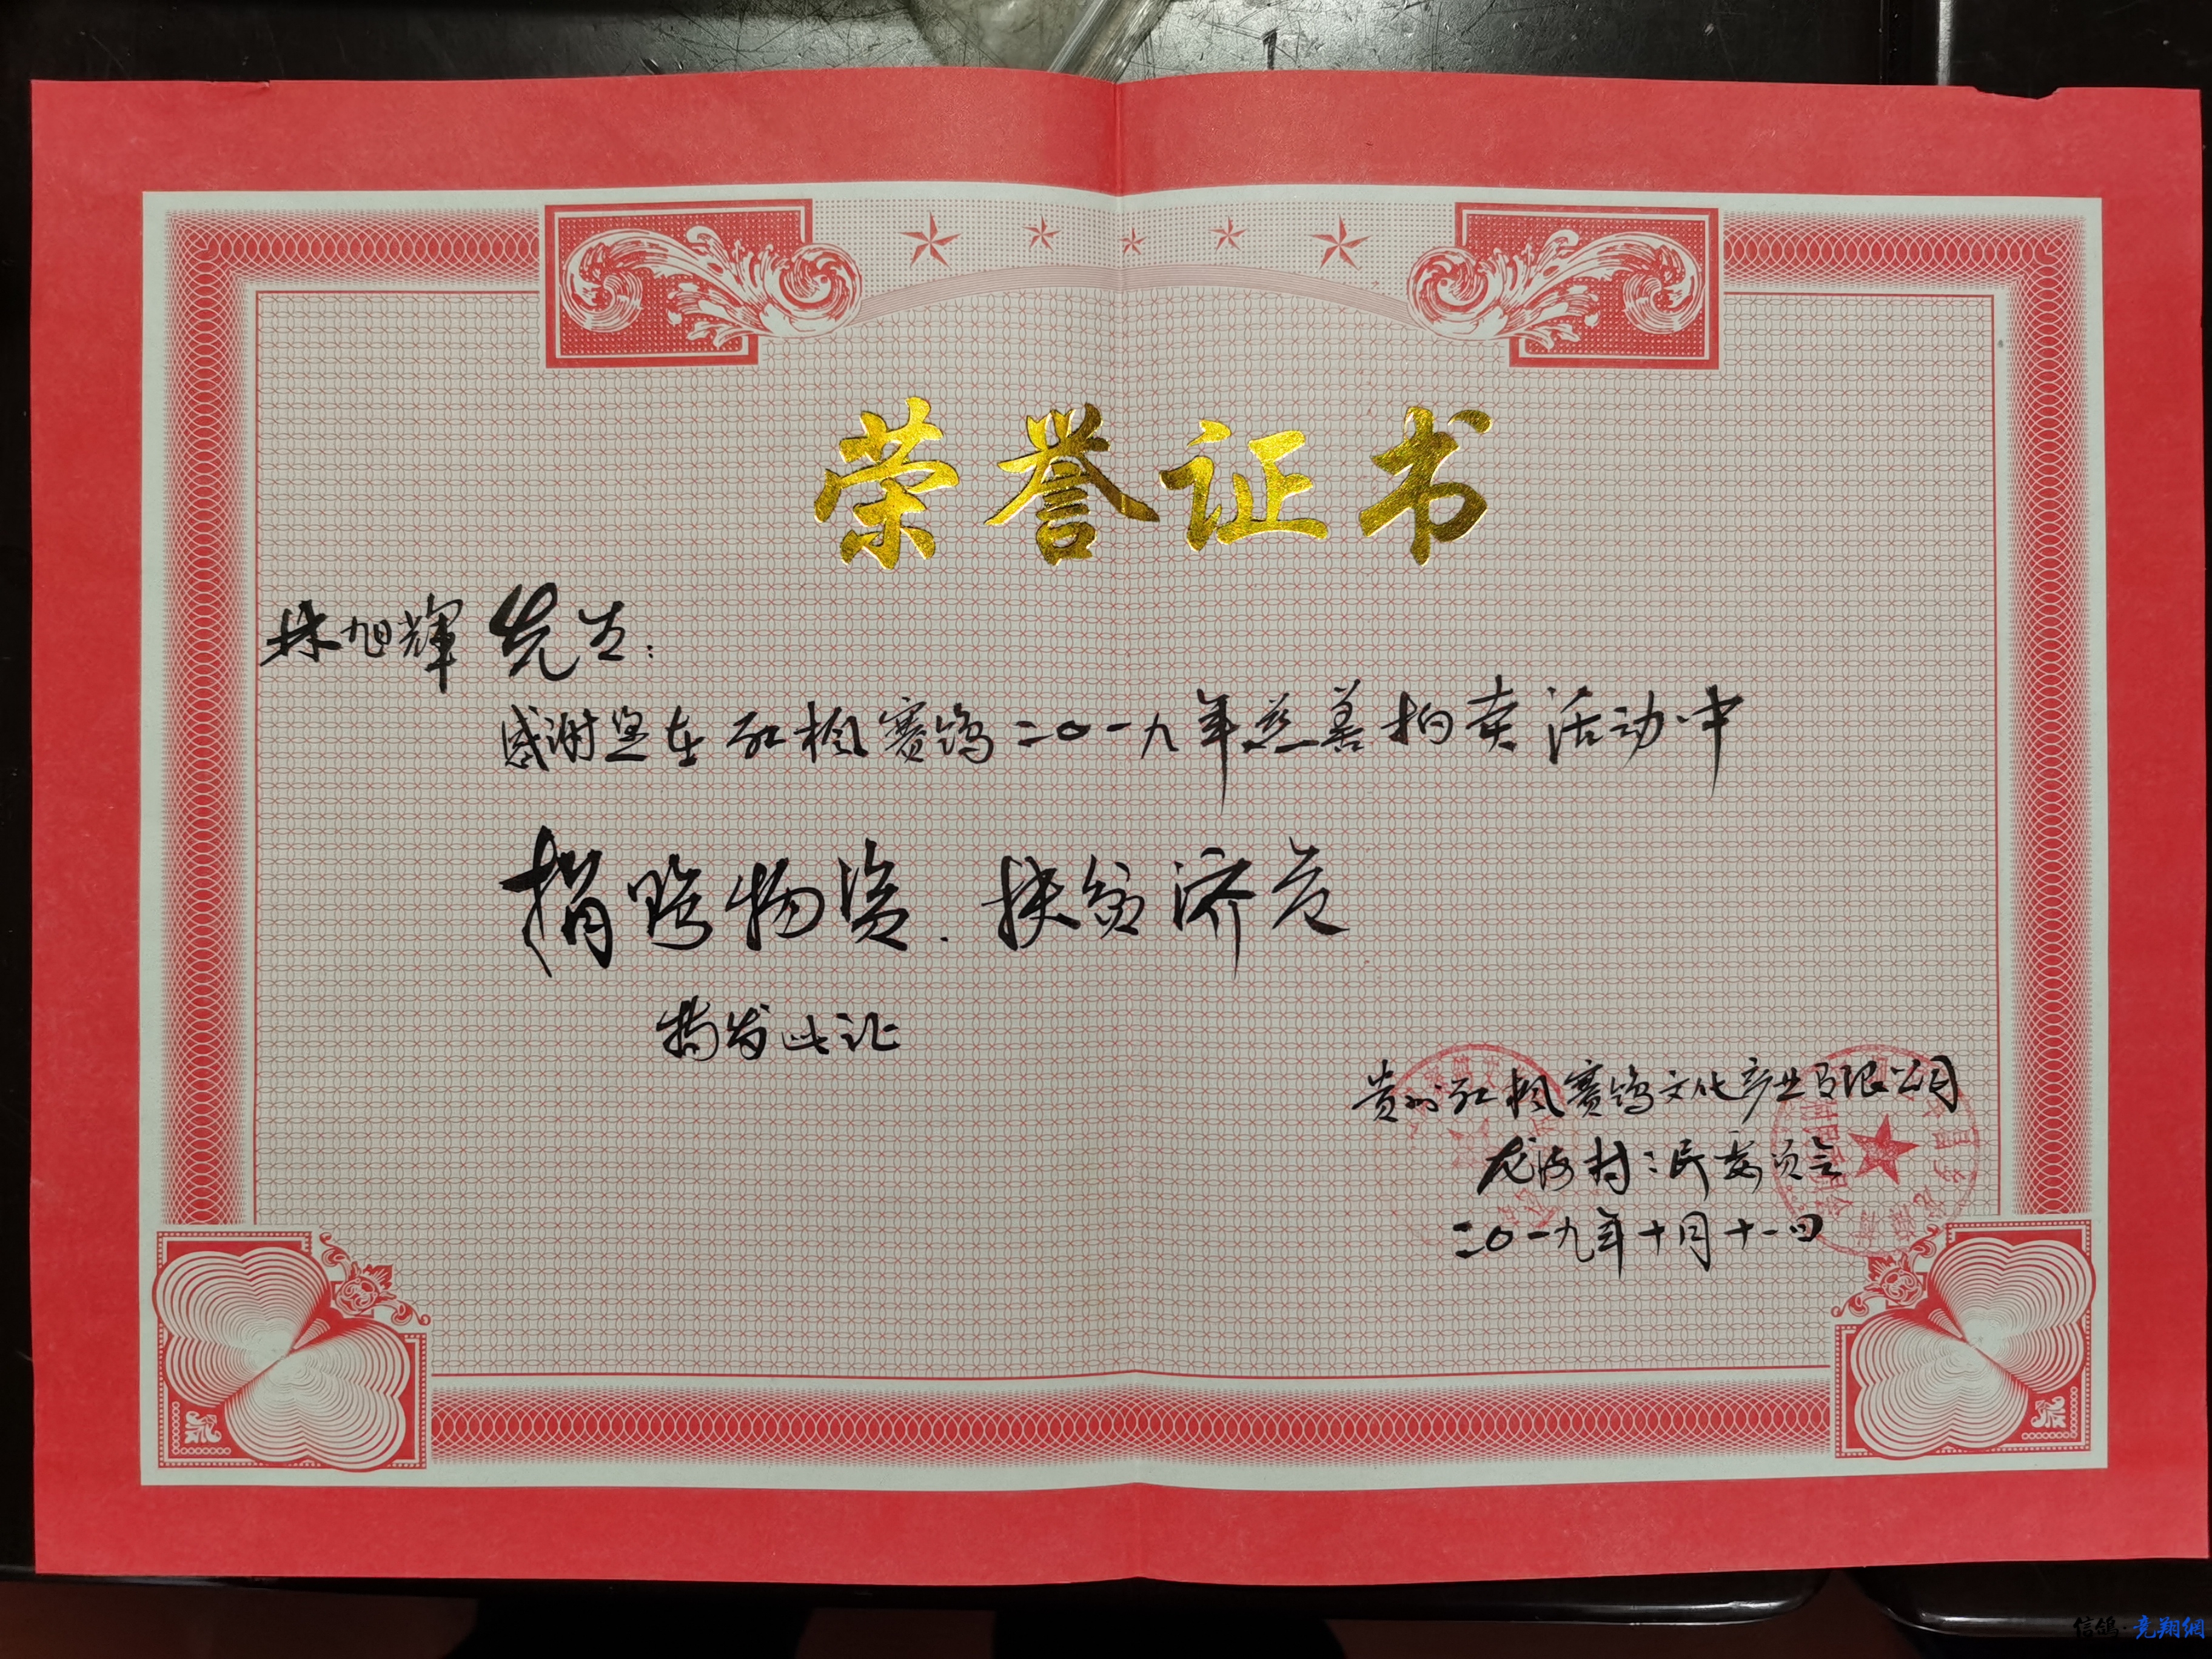 荣誉证书
林旭輝 先生：
感谢您在红枫赛鸽二〇一九年慈善拍卖活动中
捐赠物资.扶贫济危
特发此证
贵州红枫赛鸽文化产业有限公司
龙海村村民委员会
二〇一九年十月十一日
信鸽·竞翔網